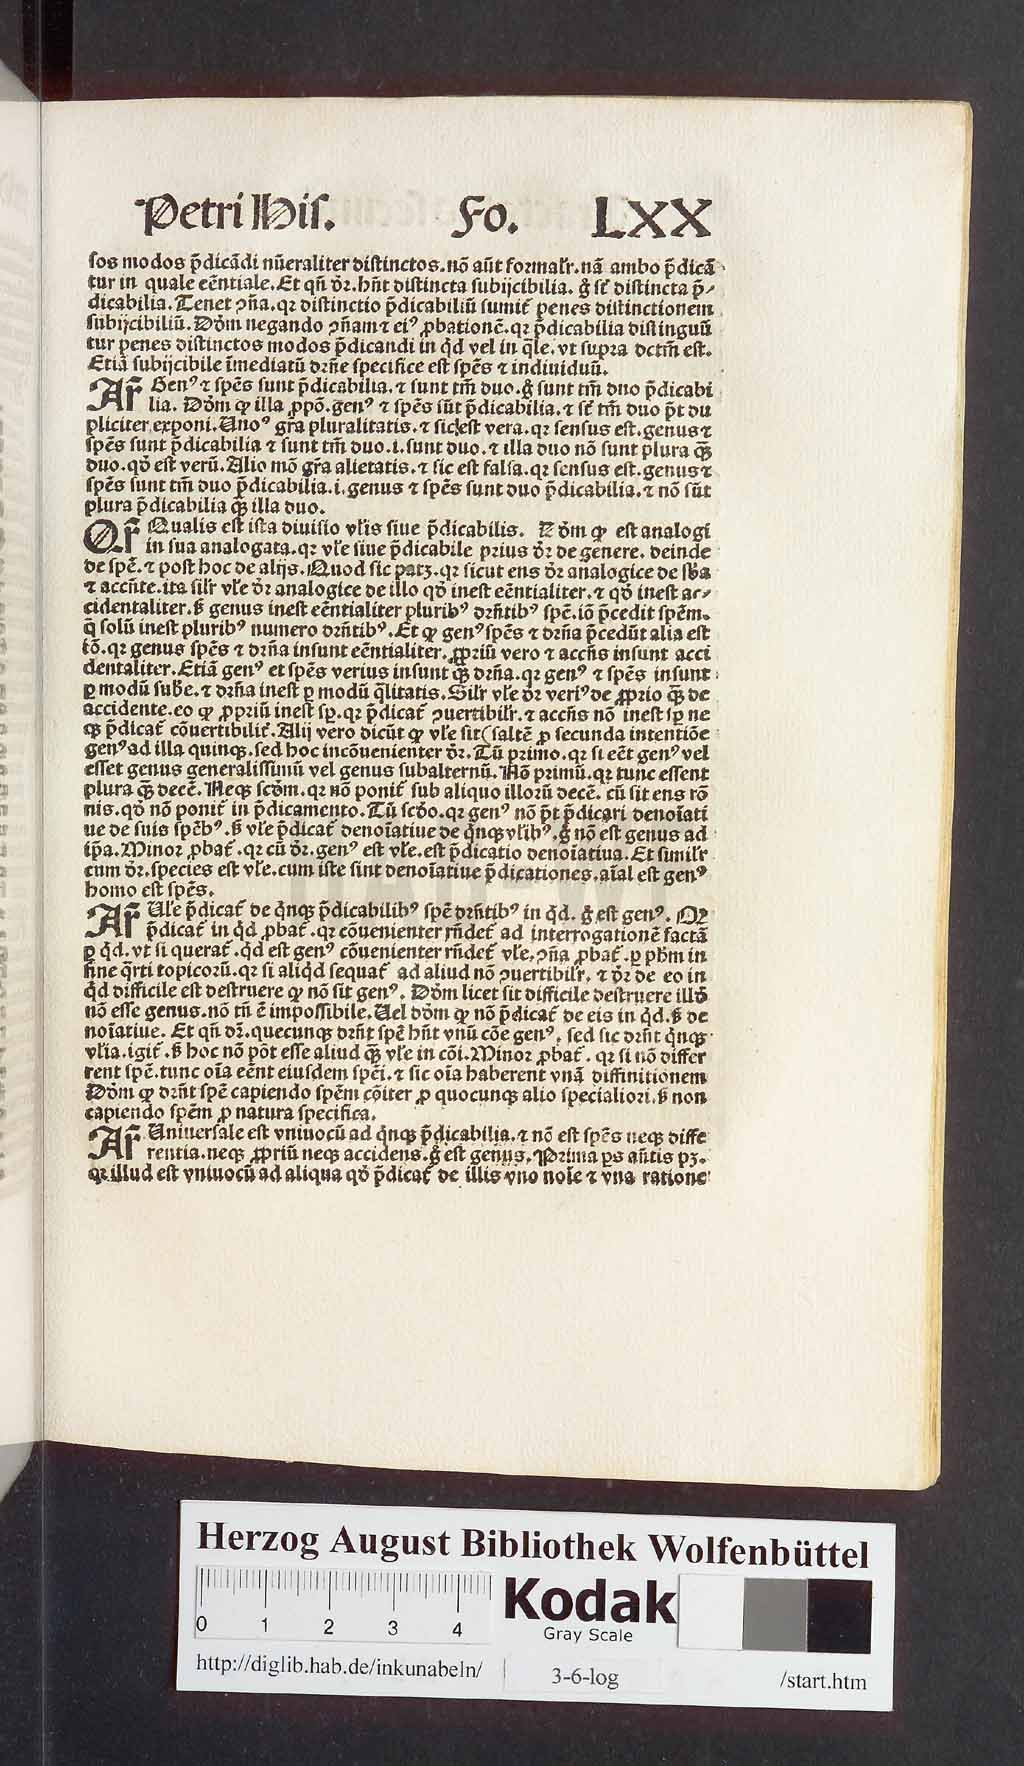 Petri His. Fo. LXX
sos modos p̃dicãdi nũeraliter distinctos. nõ aũt formalr̃. nã ambo p̃dicã
tur in quale eẽntiale. Et qñ dr̃. hñt distincta subijcibilia. g̃ sẽ distincta p̃⸗
dicabilia. Tenet ꝯña. qꝛ distinctio p̃dicabiliũ sumit᷑ penes distinctionem
subijcibiliũ. Dõm negando ꝯñam ⁊ eiꝰ ꝓbationẽ. qꝛ p̃dicabilia distinguũ
tur penes distinctos modos p̃dicandi in qd̃ vel in q̃le. vt supra dctm̃ est.
Etiã subijcibile ĩmediatũ drñe specifice est spẽs ⁊ indiuiduũ.
Ar̃ Genꝰ ⁊ spẽs sunt p̃dicabilia. ⁊ sunt tm̃ duo. g̃ sunt tm̃ duo p̃dicabi
lia. Dõm ꝙ illa ꝓpõ. genꝰ ⁊ spẽs sũt p̃dicabilia. ⁊ sẽ tm̃ duo p̃t du
pliciter exponi. Unoꝰ gr̃a pluralitatis. ⁊ sic est vera. qꝛ sensus est. genus ⁊
spẽs sunt p̃dicabilia ⁊ sunt tm̃ duo. i. sunt duo. ⁊ illa duo nõ sunt plura q̃ꝫ
duo. qd̃ est verũ. Alio mõ gr̃a alietatis. ⁊ sic est falsa. qꝛ sensus est. genus ⁊
spẽs sunt tm̃ duo p̃dicabilia. i. genus ⁊ spẽs sunt duo p̃dicabilia. ⁊ nõ sũt
plura p̃dicabilia q̃ꝫ illa duo.
Qr̃ Qualis est ista diuisio vlis̃ siue p̃dicabilis. Dõm ꝙ est analogi
in sua analogata. qꝛ vle̾ siue p̃dicabile prius dr̃ de genere. deinde
de spẽ. ⁊ post hoc de alijs. Quod sic patꝫ. qꝛ sicut ens dr̃ analogice de sb̾a
⁊ accñte. ita silr̃ vle̾ dr̃ analogice de illo qd̃ inest eẽntialiter. ⁊ qd̃ inest ac⸗
cidentaliter. ß genus inest eẽntialiter pluribꝰ drñtibꝰ spẽ. iõ p̃cedit spẽm.
q̃ solũ inest pluribꝰ numero drñtibꝰ. Et ꝙ genꝰ spẽs ⁊ drña p̃cedũt alia est
iõ. qꝛ genus spẽs ⁊ drña insunt eẽntialiter. ꝓpriũ vero ⁊ accñs insunt acci
dentaliter. Etiã genꝰ et spẽs verius insunt q̃ꝫ drña. qꝛ genꝰ ⁊ spẽs insunt
ꝑ modũ sub̾e. ⁊ drña inest ꝑ modũ q̃litatis. Silr̃ vle̾ dr̃ veriꝰ de ꝓprio q̃ꝫ de
accidente. eo ꝙ ꝓpriũ inest sꝑ. qꝛ p̃dicat᷑ ꝯuertibilr̃. ⁊ accñs nõ inest sꝑ ne
qꝫ p̃dicat᷑ cõuertibilit᷑. Alij vero dicũt ꝙ vle̾ sit (saltẽ ꝓ secunda intentiõe
genꝰ ad illa quinqꝫ. sed hoc incõuenienter dr̃. Tũ primo. qꝛ si eẽt genꝰ vel
esset genus generalissimũ vel genus subalternũ. Nõ primũ. qꝛ tunc essent
plura q̃ꝫ decẽ. Neqꝫ scd̃m. qꝛ nõ ponit᷑ sub aliquo illorũ decẽ. cũ sit ens rõ
nis. qd̃ nõ ponit᷑ in p̃dicamento. Tũ scd̃o. qꝛ genꝰ nõ p̃t p̃dicari denoĩati
ue de suis spẽbꝰ. ß vle̾ p̃dicat᷑ denoĩatiue de qñqꝫ vlĩbꝰ. g̃ nõ est genus ad
ip̃a. Minor ꝓbat᷑. qꝛ cũ dr̃. genꝰ est vle̾. est p̃dicatio denoĩatiua. Et similr̃
cum dr̃. species est vle̾. cum iste sint denoĩatiue p̃dicationes. aĩal est genꝰ
homo est spẽs.
Ar̃ Vle̾ p̃dicat᷑ de qñqꝫ p̃dicabilibꝰ spẽ drñtibꝰ in qd̃. g̃ est genꝰ. Qꝛ
p̃dicat᷑ in qd̃ ꝓbat᷑. qꝛ cõuenienter rñdet᷑ ad interrogationẽ factã
ꝑ qd̃. vt si querat᷑. qd̃ est genꝰ cõuenienter rñdet᷑ vle̾. ꝯña ꝓbat᷑. ꝑ ph̃m in
fine q̃rti topicorũ. qꝛ si aliqd̃ sequat᷑ ad aliud nõ ꝯuertibilr̃. ⁊ dr̃ de eo in
qd̃ difficile est destruere ꝙ nõ sit genꝰ. Dõm licet sit difficile destruere illd̃
nõ esse genus. nõ tñ ẽ impossibile. Uel dõm ꝙ nõ p̃dicat᷑ de eis in qd̃. ß de
noĩatiue. Et qñ dr̃. quecunqꝫ drñt spẽ hñt vnũ cõe genꝰ. sed sic drñt qñqꝫ
vlĩa. igit᷑. ß hoc nõ põt esse aliud q̃ꝫ vle̾ in cõi. Minor ꝓbat᷑. qꝛ si nõ differ
rent spẽ. tunc oĩa eẽnt eiusdem spẽi. ⁊ sic oĩa haberent vnã diffinitionem
Dõm ꝙ drñt spẽ capiendo spẽm cõiter ꝓ quocunqꝫ alio specialiori. ß non
capiendo spẽm ꝓ natura specifica.
Ar̃ Uniuersale est vniuocũ ad qñqꝫ p̃dicabilia. ⁊ nõ est spẽs neqꝫ diffe
rentia. neqꝫ ꝓpriũ neqꝫ accidens. g̃ est genus. Prima ꝑs añtis pꝫ.
qꝛ illud est vniuocũ ad aliqua qd̃ p̃dicat᷑ de illis vno noĩe ⁊ vna ratione
Herzog August Bibliothek Wolfenbüttel
0 1 2 3 4
Kodak
Gray Scale
http://diglib.hab.de/inkunabeln/ 3-6-log /start.htm